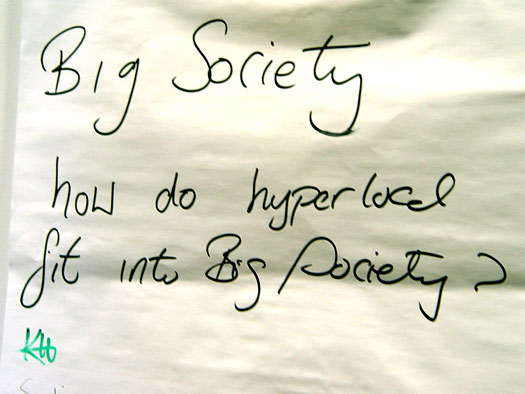 Big Society
how do hyperlocal
fit into Big Society?